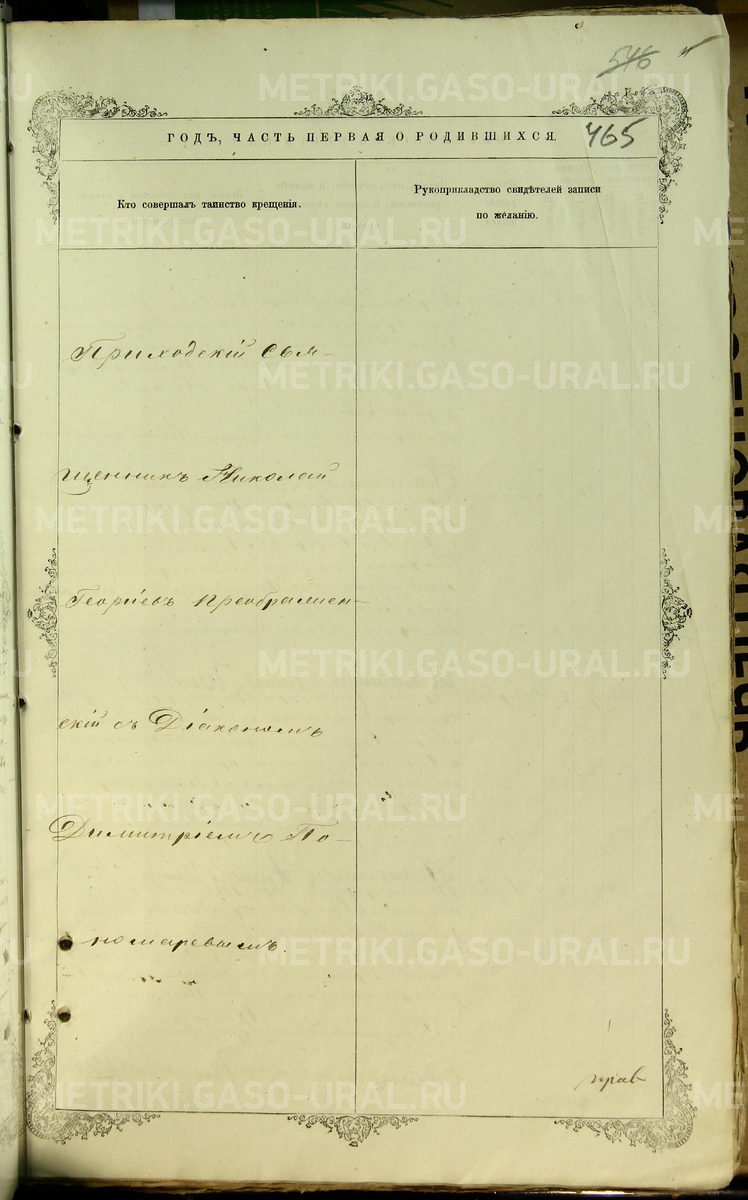 546
465
ГОДЪ, ЧАСТЬ ПЕРВАЯ О РОДИВШИХСЯ.
Кто совершалъ таинство крещенія.
Рукоприкладство свидѣтелей записи
по желанію.
Приходскій Свя-
щенникъ Николай
Георгіевъ Преображен-
скій съ Діакономъ
Димитріемъ По-
номаревымъ.
METRIKI.GASO-URAL.RU